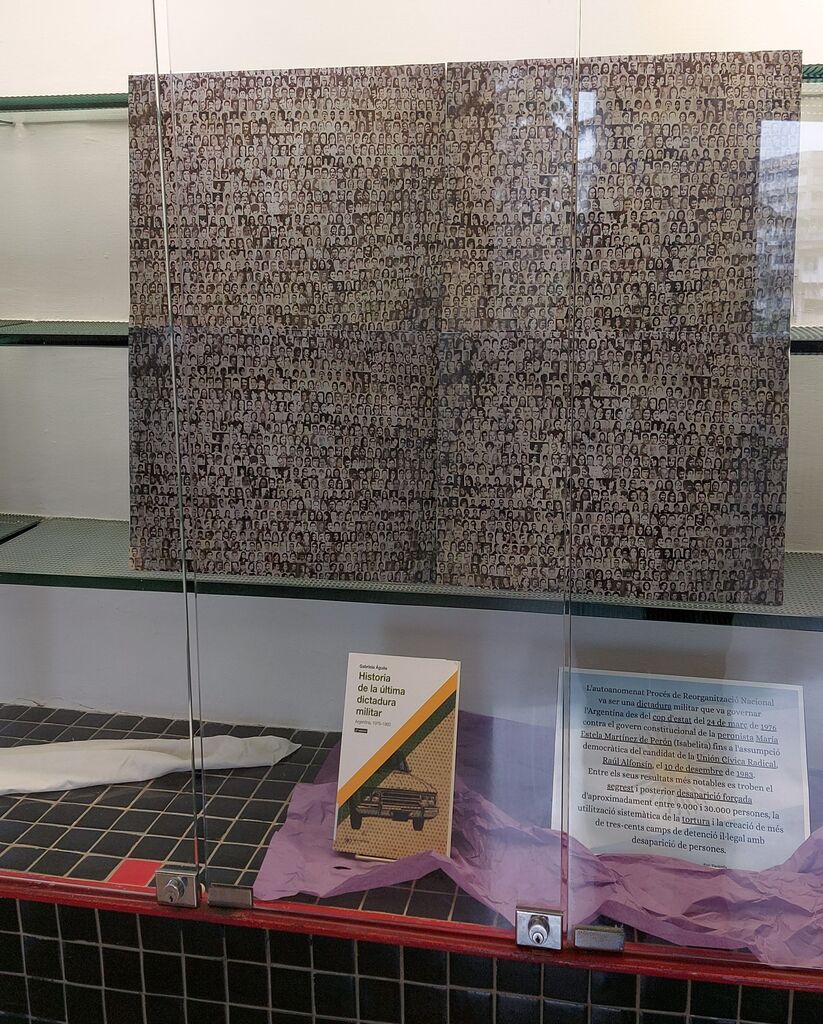 Gabriela Águila
Historia
de la última
dictadura
militar
Argentina, 1976-1983
L'autoanomenat Procés de Reorganització Nacional
va ser una dictadura militar que va governar
l'Argentina des del cop d'estat del 24 de març de 1976
contra el govern constitucional de la peronista María
Estela Martínez de Perón (Isabelita) fins a l'assumpció
democràtica del candidat de la Unión Cívica Radical,
Raúl Alfonsín, el 10 de desembre de 1983.
Entre els seus resultats més notables es troben el
segrest i posterior desaparició forçada
d'aproximadament entre 9.000 i 30.000 persones, la
utilització sistemàtica de la tortura i la creació de més
de tres-cents camps de detenció il·legal amb
desaparició de persones.